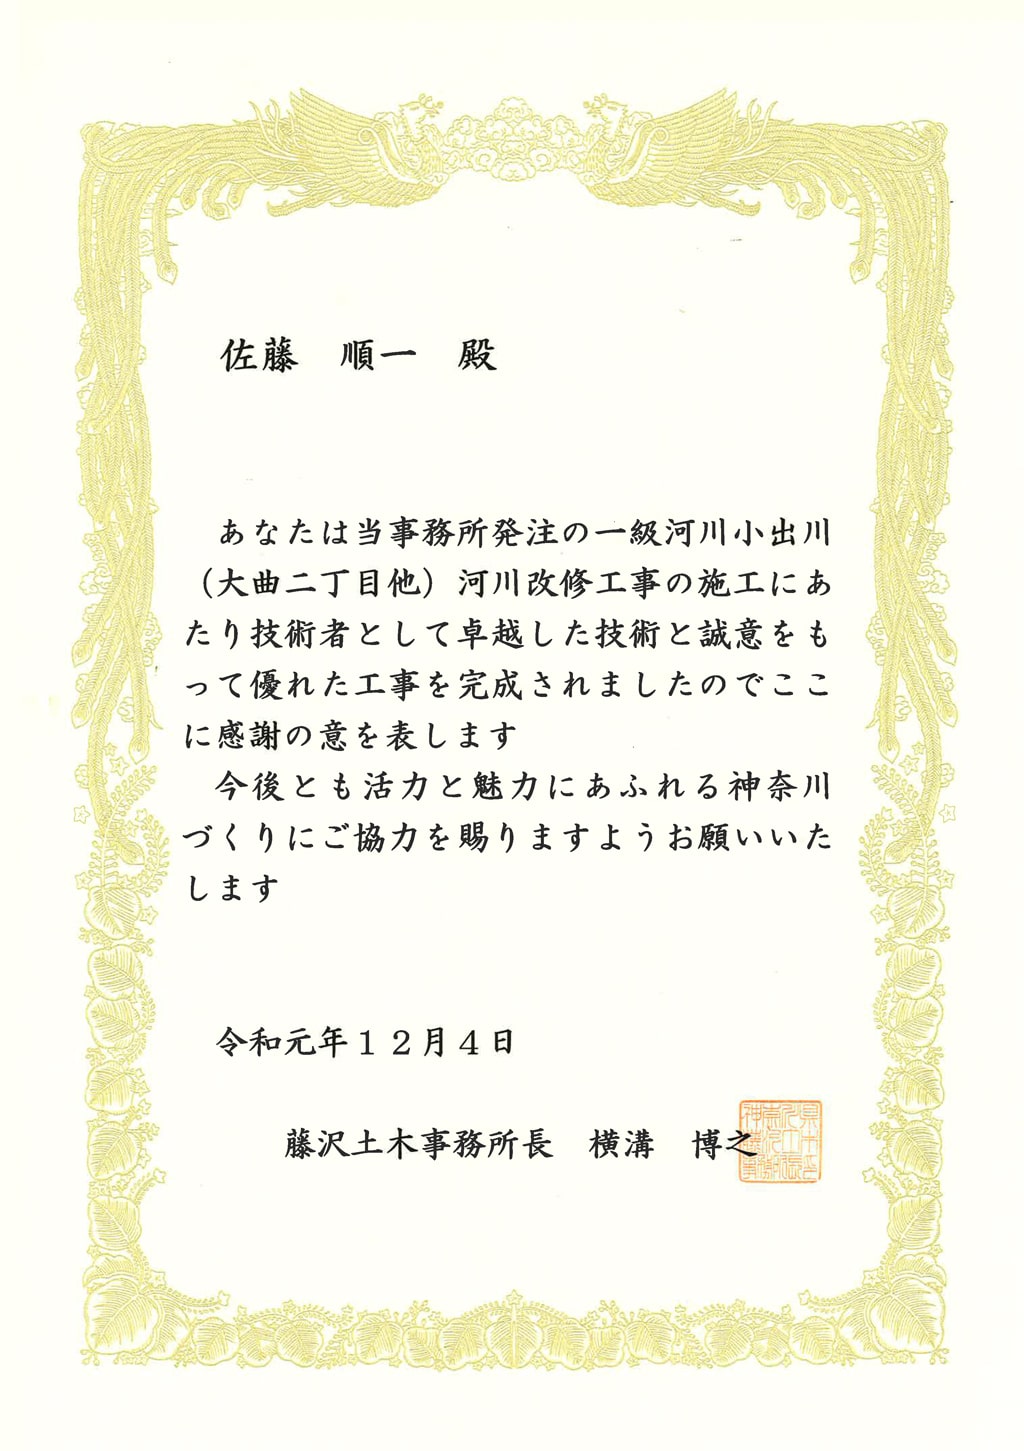 佐藤　順一　殿
あなたは当事務所発注の一級河川小出川
（大曲二丁目他）河川改修工事の施工にあ
たり技術者として卓越した技術と誠意をも
って優れた工事を完成されましたのでここ
に感謝の意を表します
今後とも活力と魅力にあふれる神奈川
づくりにご協力を賜りますようお願いいた
します
令和元年１２月４日
藤沢土木事務所長　横溝　博之